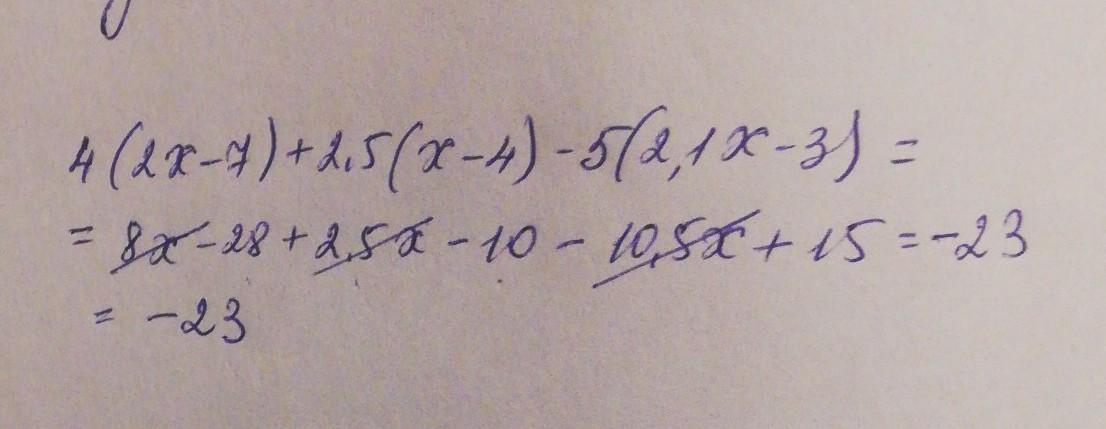 4(2x-7)+2,5(x-4)-5(2,1x-3)=
= 8x-28+2,5x-10-10,5x+15=-23
= -23